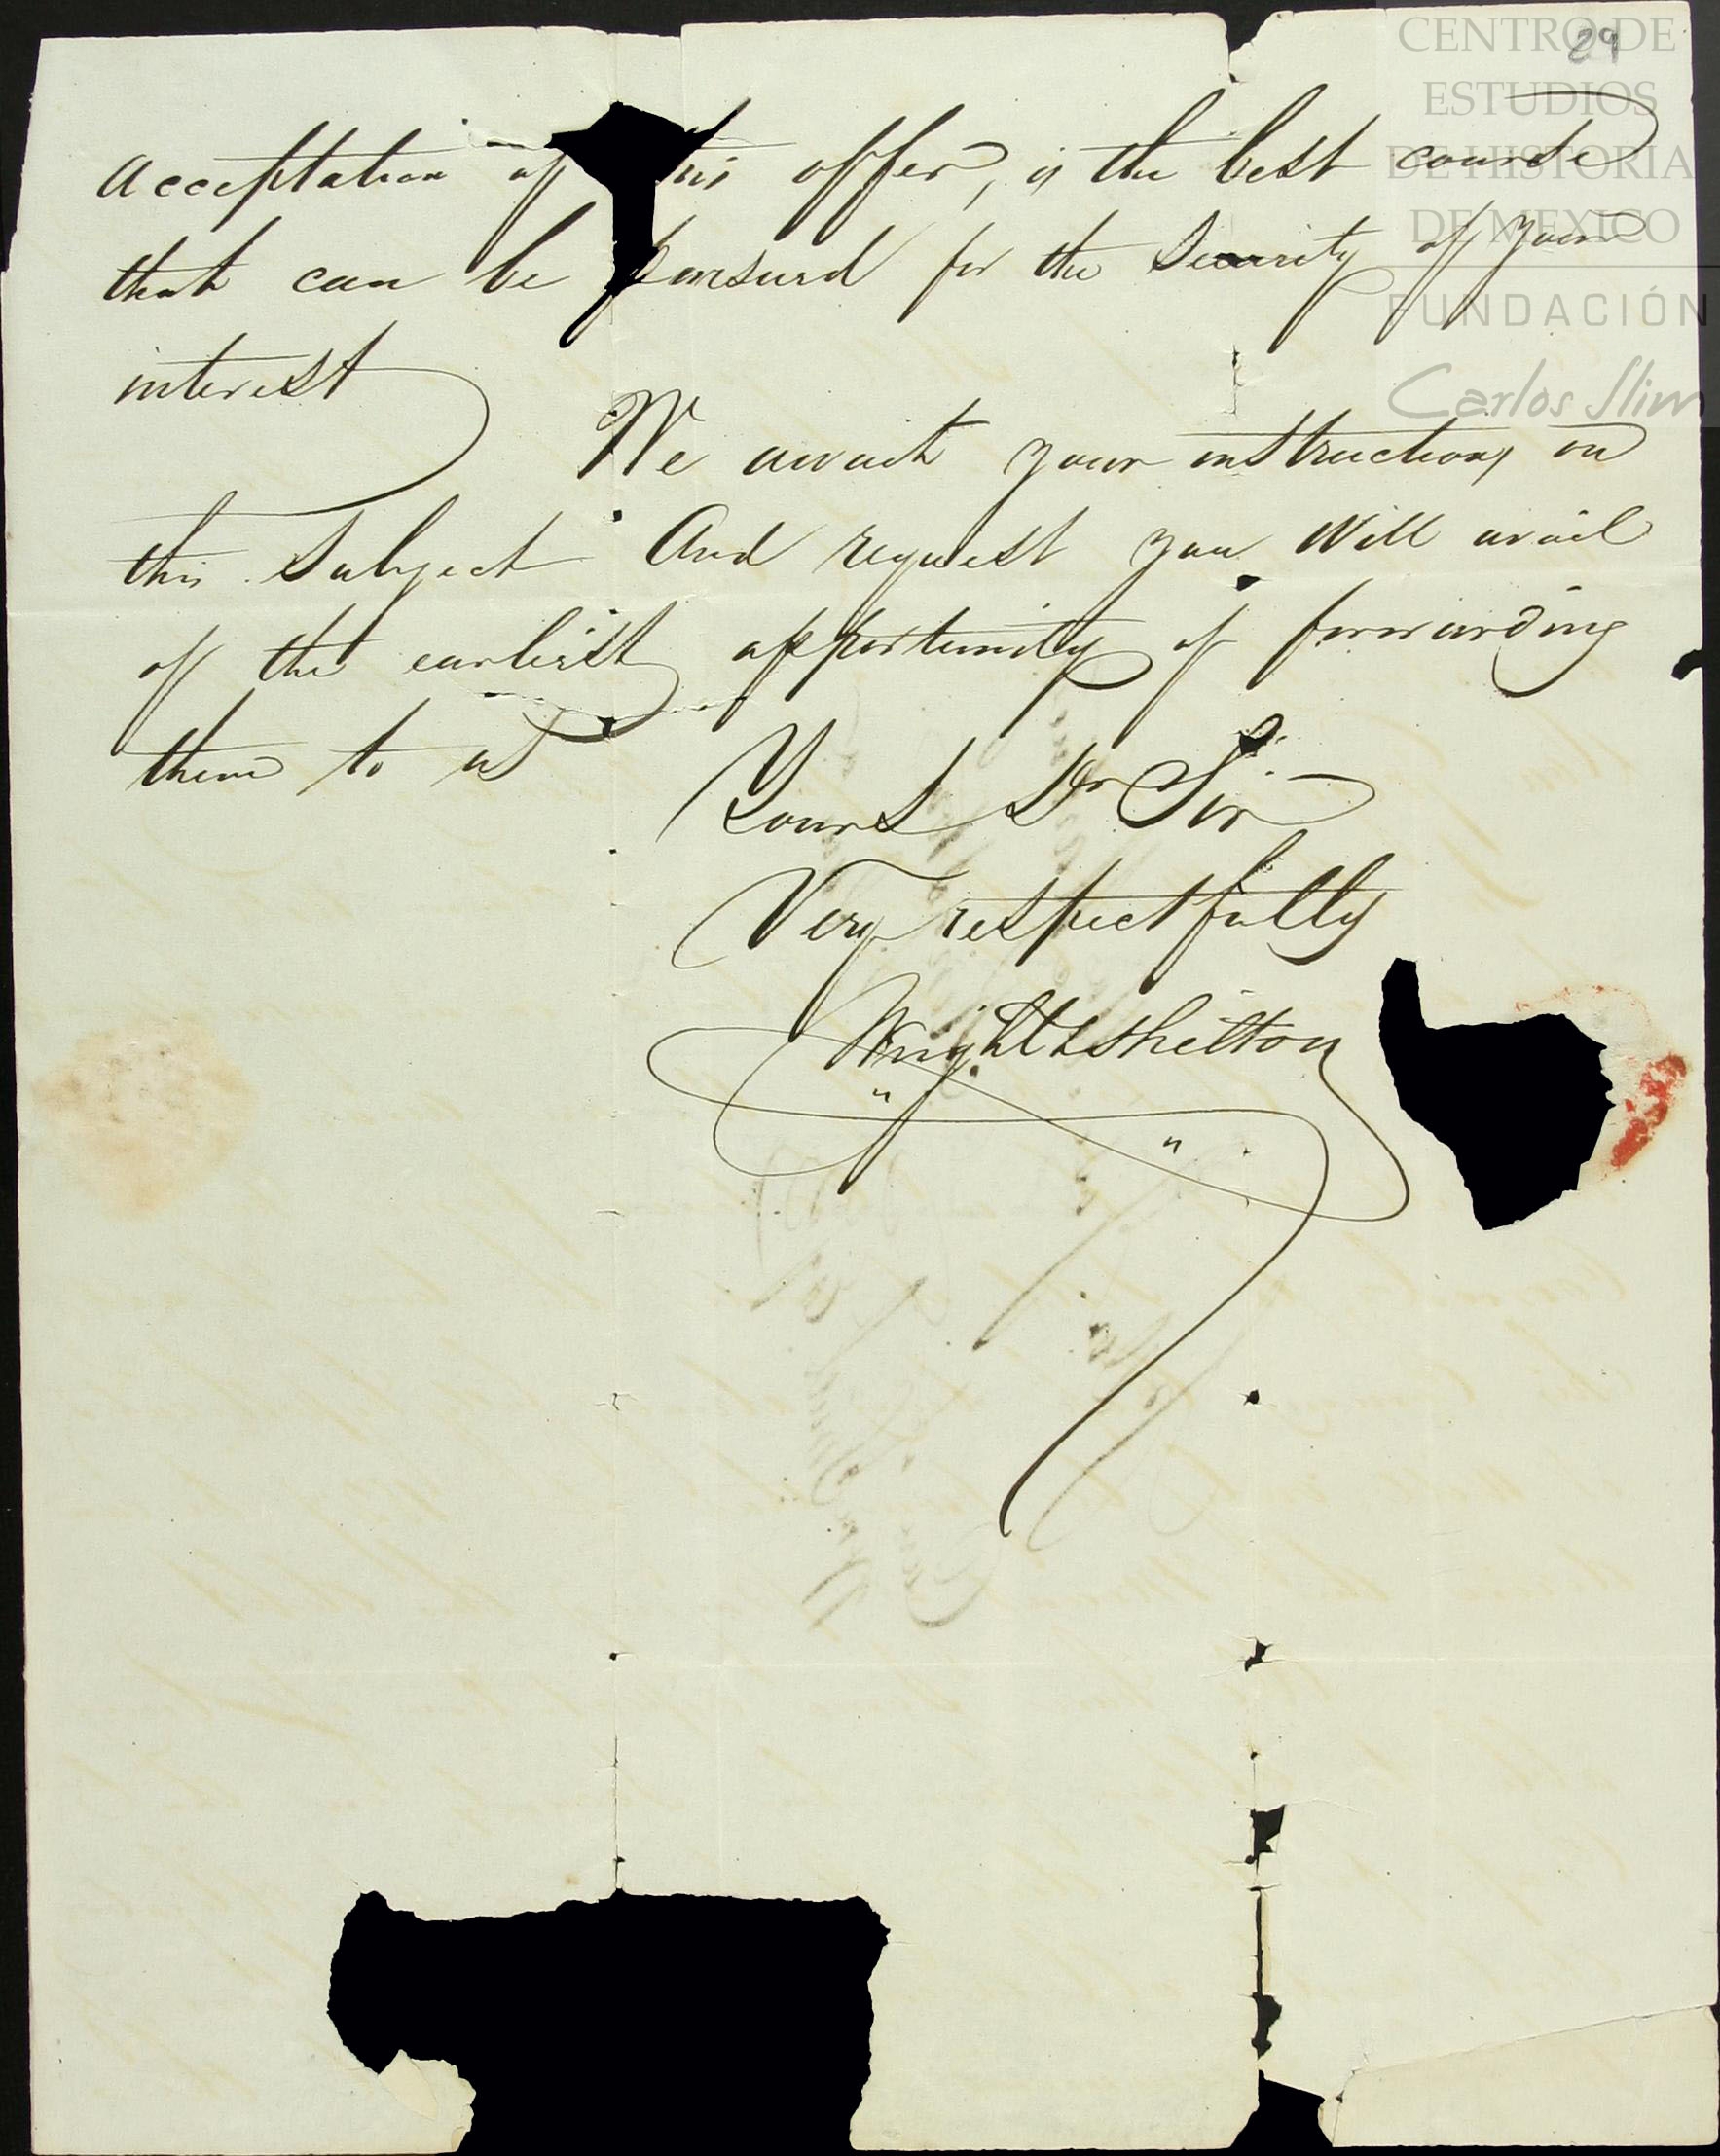 29
CENTRO DE
ESTUDIOS
DE HISTORIA
DE MEXICO
FUNDACIÓN
Carlos Slim
acceptation of this offer, is the best course
that can be pursurd for the Security of your
interest
We await your instructions on
this Subject And request you Will avail
of the earliest opportunity of forwarding
them to us
Yours Dr Sir
Very respectfully
Wright & Shelton